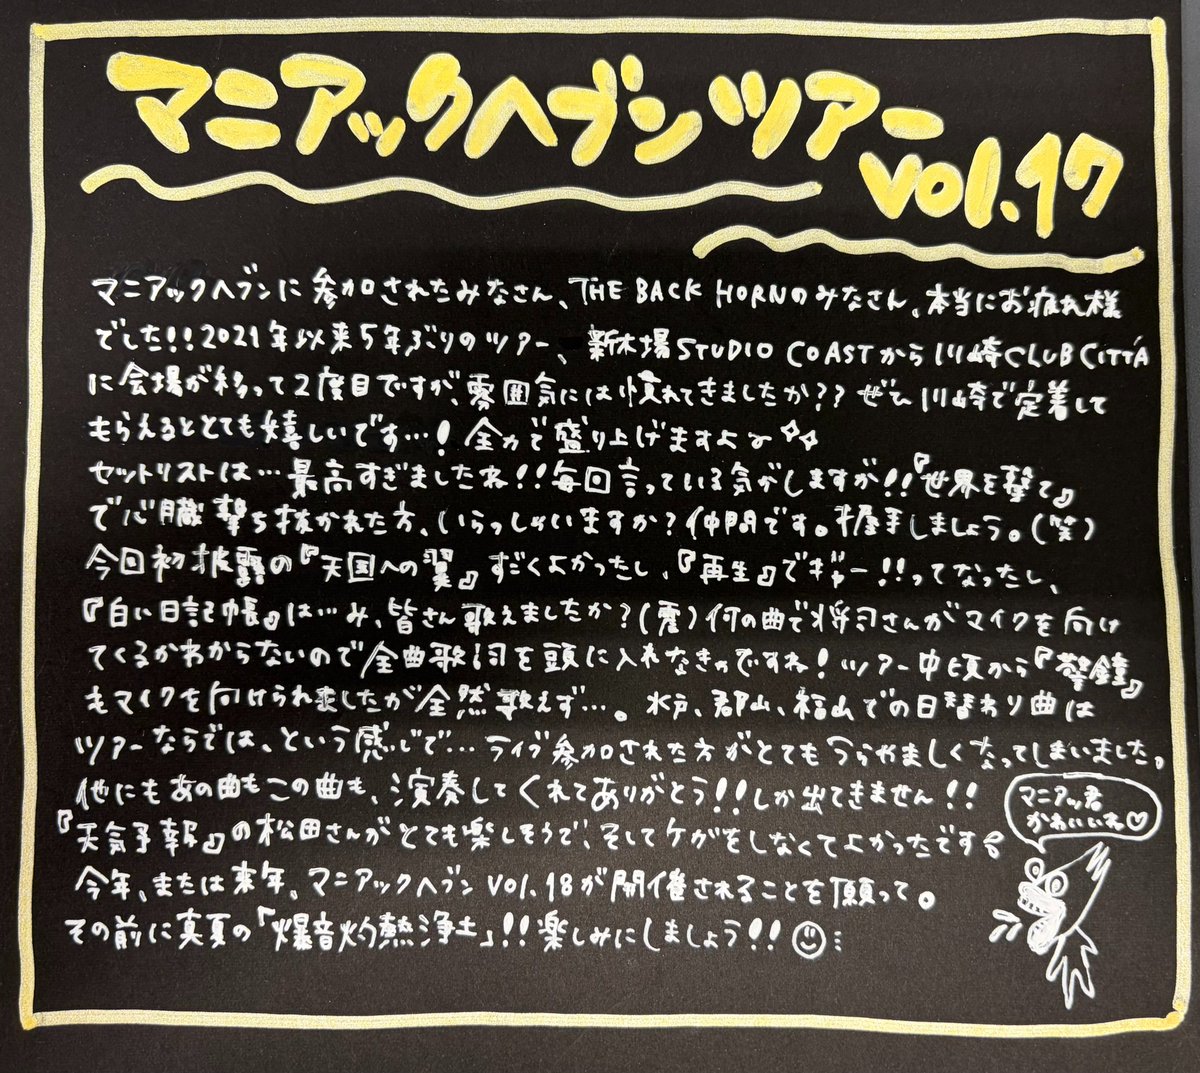 マニアックヘブンツアー
vol.17
マニアックヘブンに参加されたみなさん、THE BACK HORNのみなさん、本当にお疲れ様
でした!!2021年以来5年ぶりのツアー、新木場STUDIO COASTから川崎CLUB CITTA'
に会場が移って2度目ですが、雰囲気には慣れてきましたか??ぜひ川崎で定着して
もらえるととても嬉しいです…!全力で盛り上げますよ〜✧✧
セットリストは…最高すぎましたね!!毎回言っている気がしますが!!『世界を撃て』
で心臓撃ち抜かれた方、いらっしゃいますか?仲間です。握手しましょう。(笑)
今回初披露の『天国への翼』すごくよかったし、『再生』でギャー!!ってなったし、
『白い日記帳』は…み、皆さん歌えましたか?(震)何の曲で将司さんがマイクを向け
てくるかわからないので全曲歌詞を頭に入れなきゃですね!ツアー中頃から『警鐘』
もマイクを向けられましたが全然歌えず…。水戸、郡山、福山での日替わり曲は
ツアーならでは、という感じで…ライブ参加された方がとてもうらやましくなってしまいました。
他にもあの曲もこの曲も、演奏してくれてありがとう!!しか出てきません!!
『天気予報』の松田さんがとても楽しそうで、そしてケガをしなくてよかったです
今年、または来年、マニアックヘブンvol.18が開催されることを願って。
その前に真夏の「爆音灼熱浄土」!!楽しみにしましょう!!
マニアッ君
かわいいね♡